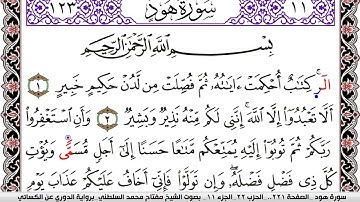 ١٢٣ سُورَةُ هُودٍ ١١
بِسْمِ اللَّهِ الرَّحْمَٰنِ الرَّحِيمِ
الٓر كِتَٰبٌ أُحْكِمَتْ ءَايَٰتُهُۥ ثُمَّ فُصِّلَتْ مِن لَّدُنْ حَكِيمٍ خَبِيرٍ ١
أَلَّا تَعْبُدُوٓا۟ إِلَّا اللَّهَ إِنَّنِى لَكُم مِّنْهُ نَذِيرٌ وَبَشِيرٌ ٢ وَأَنِ اسْتَغْفِرُوا۟
رَبَّكُمْ ثُمَّ تُوبُوٓا۟ إِلَيْهِ يُمَتِّعْكُم مَّتَٰعًا حَسَنًا إِلَىٰٓ أَجَلٍ مُّسَمًّى وَيُؤْتِ
كُلَّ ذِى فَضْلٍ فَضْلَهُۥ وَإِن تَوَلَّوْا۟ فَإِنِّىٓ أَخَافُ عَلَيْكُمْ عَذَابَ يَوْمٍ
سورة هود الصفحة ٢٢١... الحزب ٢٢... الجزء ١١. بصوت الشيخ مفتاح محمد السلطني. برواية الدوري عن الكسائي